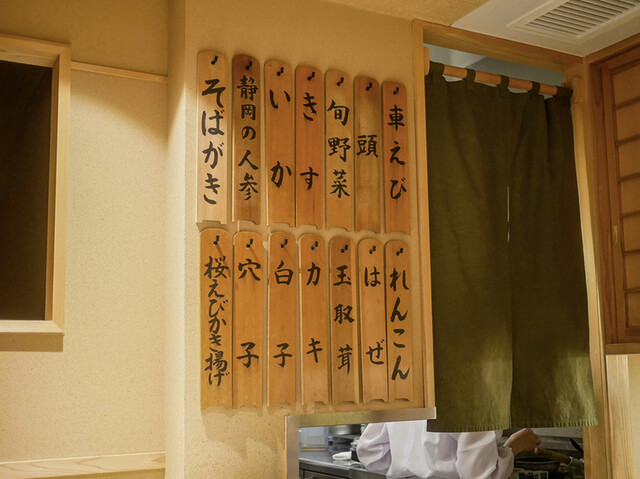 車えび
頭
旬野菜
きす
いか
静岡の人参
そばがき
れんこん
はぜ
玉取茸
カキ
白子
穴子
桜えびかき揚げ